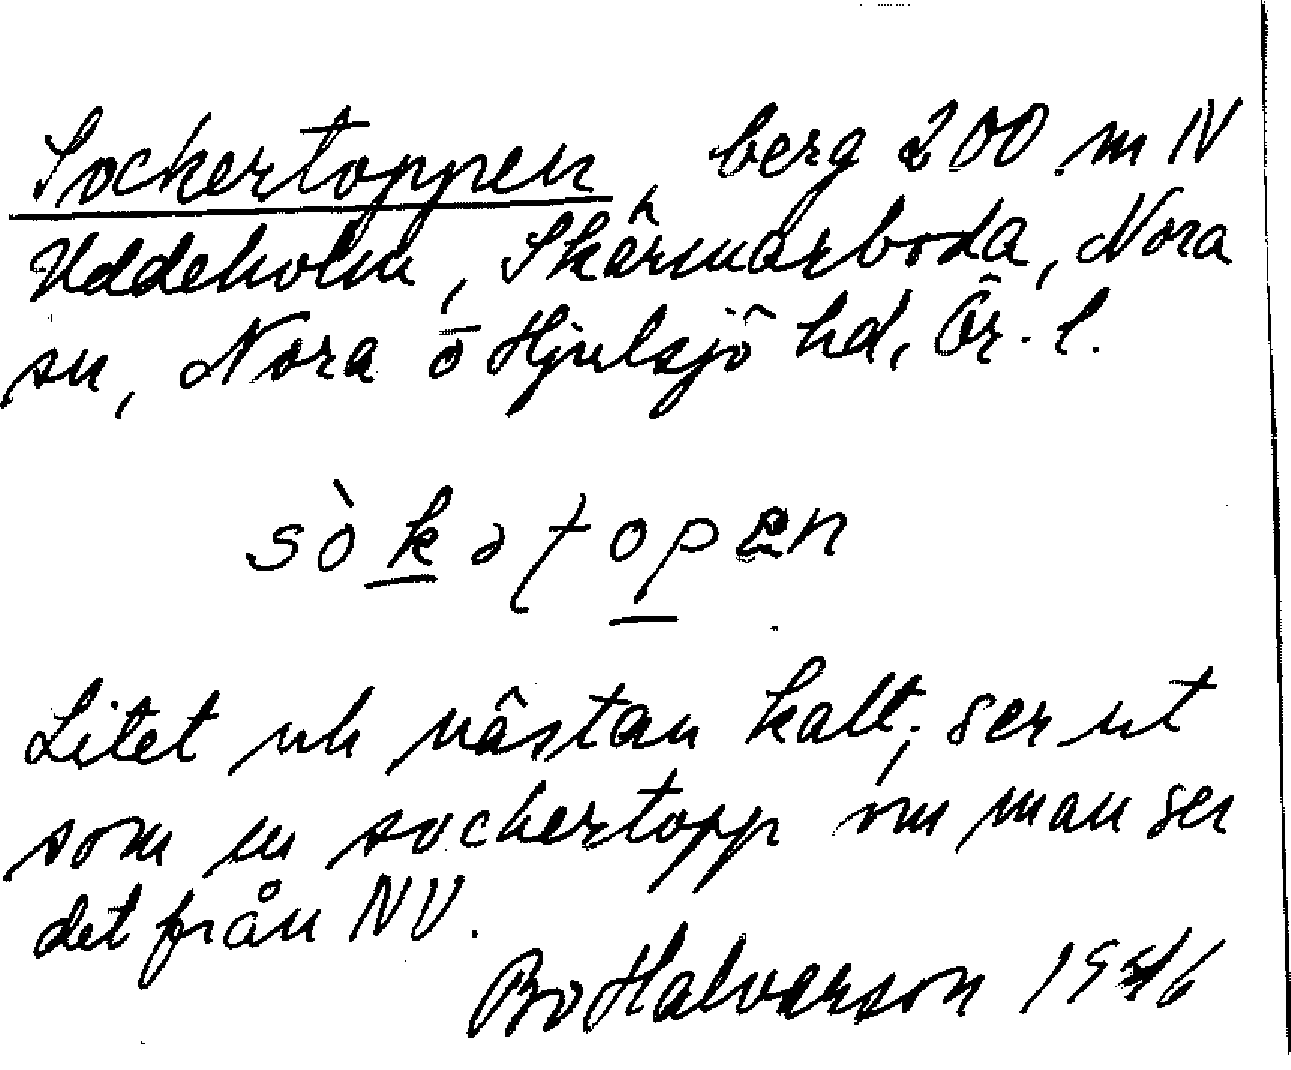 Sockertoppen, berg 200 m N
Uddeholm, Skärmarboda, Nora
sn, Nora o Hjulsjö hd, Ör. l.
sòkətopen
Litet och nästan kalt; ser ut
som en sockertopp om man ser
det från NV.
Bo Halvarson 1946